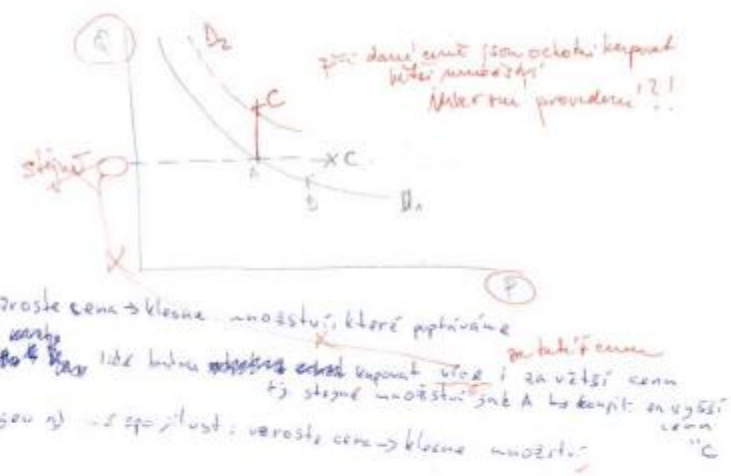 Q
D₂
při dané ceně jsou ochotni kupovat
větší množství
provedení!?!
C
stejně
A
C
B
D₁
P
vzroste cena → klesne množství, které poptáváme
za tutéž cenu
lidé budou kupovat více i za větší cenu
tj stejné množství jak A ho koupit za vyšší
cenu
"C
vzroste cena → klesne množství